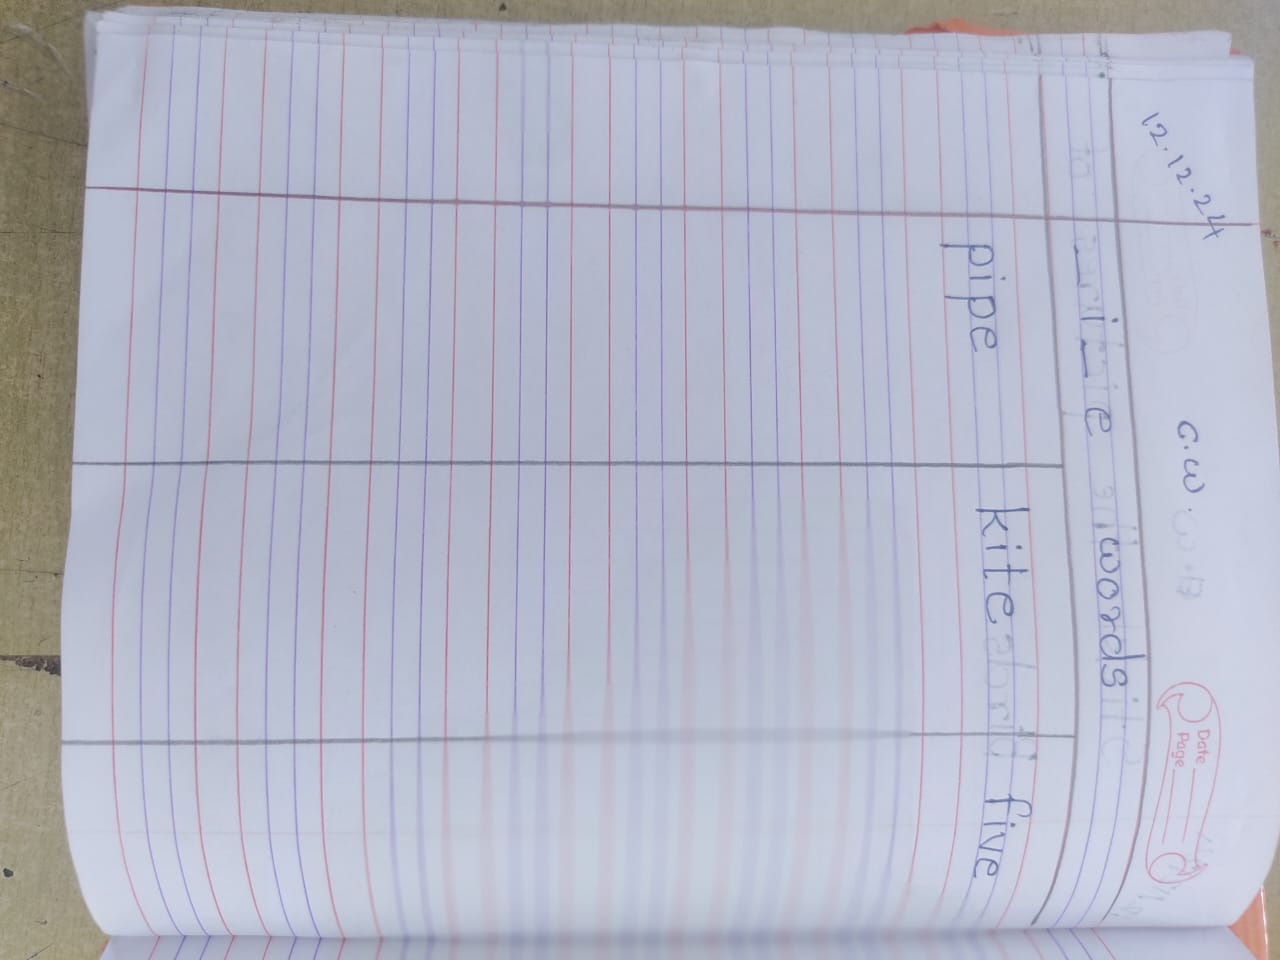 12.12.24 C.W.
Date
Page
_i_e words
pipe kite five